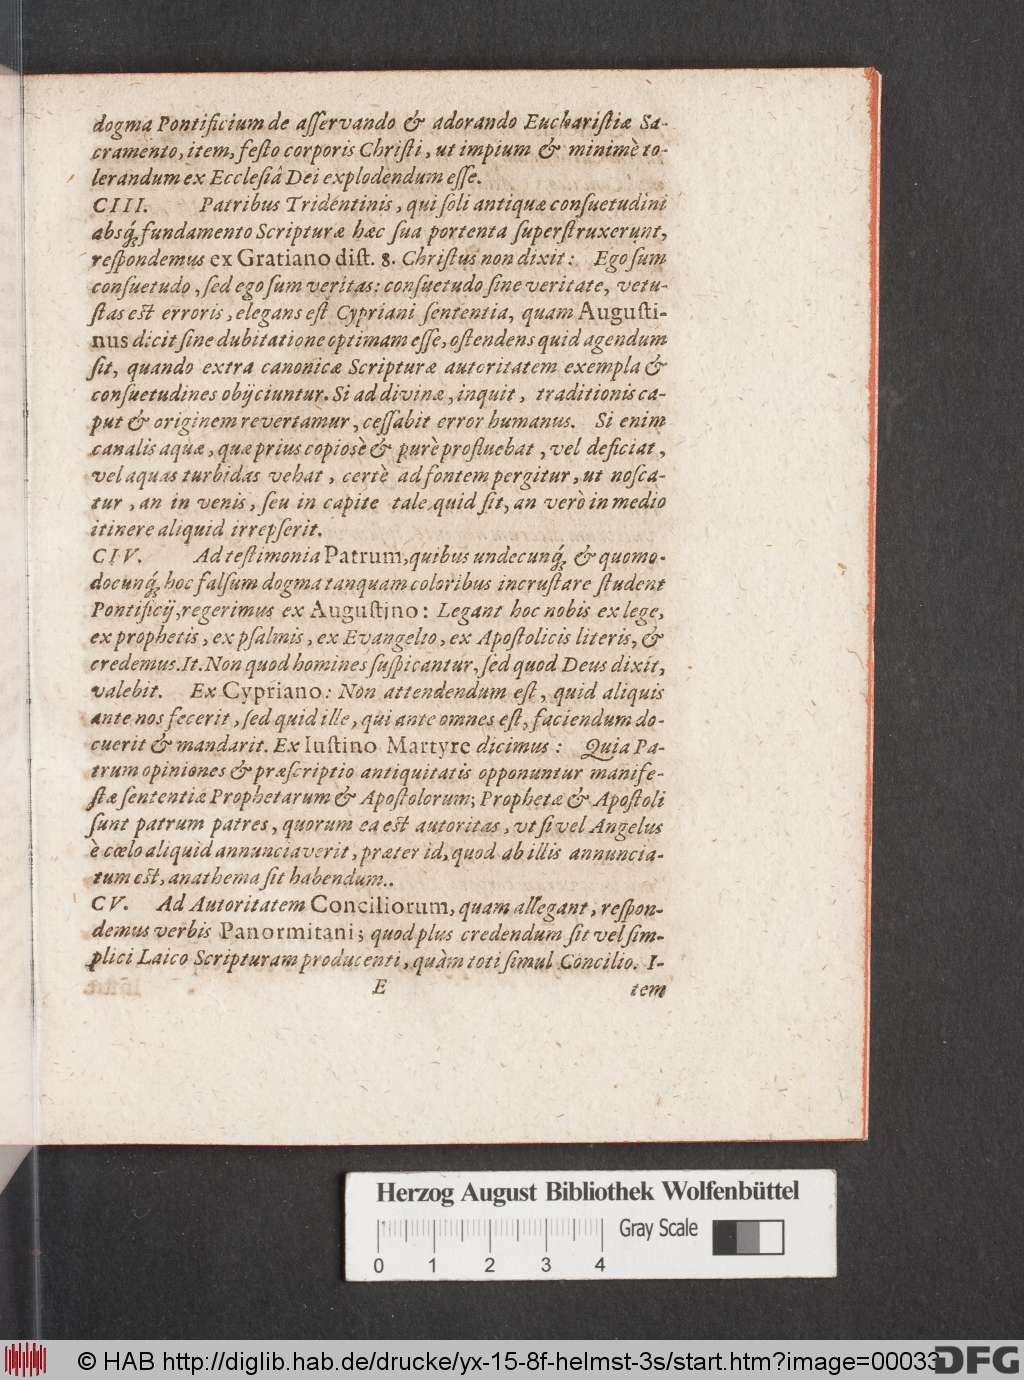 dogma Pontificium de aſſervando & adorando Euchariſtiæ Sa-
cramento, item, feſto corporis Chriſti, ut impium & minimè to-
lerandum ex Eccleſiâ Dei explodendum eſſe.
CIII. Patribus Tridentinis, qui ſoli antiquæ conſuetudini
absq́; fundamento Scripturæ hæc ſua portenta ſuperſtruxerunt,
reſpondemus ex Gratiano diſt. 8. Chriſtus non dixit: Ego ſum
conſuetudo, ſed ego ſum veritas: conſuetudo ſine veritate, vetu-
ſtas eſt erroris, elegans eſt Cypriani ſententia, quam Auguſti-
nus dicit ſine dubitatione optimam eſſe, oſtendens quid agendum
ſit, quando extra canonicæ Scripturæ autoritatem exempla &
conſuetudines obijciuntur. Si ad divinæ, inquit, traditionis ca-
put & originem revertamur, ceſſabit error humanus. Si enim
canalis aquæ, quæ prius copiosè & purè profluebat, vel deficiat,
vel aquas turbidas vehat, certè ad fontem pergitur, ut noſca-
tur, an in venis, ſeu in capite tale quid ſit, an verò in medio
itinere aliquid irrepſerit.
CIV. Ad teſtimonia Patrum, quibus undecunq́; & quomo-
docunq́; hoc falſum dogma tanquam coloribus incruſtare ſtudent
Pontificij, regerimus ex Auguſtino: Legant hoc nobis ex lege,
ex prophetis, ex pſalmis, ex Evangelio, ex Apoſtolicis literis, &
credemus. It. Non quod homines ſuſpicantur, ſed quod Deus dixit,
valebit. Ex Cypriano: Non attendendum eſt, quid aliquis
ante nos fecerit, ſed quid ille, qui ante omnes eſt, faciendum do-
cuerit & mandarit. Ex Iuſtino Martyre dicimus: Quia Pa-
trum opiniones & præſcriptio antiquitatis opponuntur manife-
ſtæ ſententiæ Prophetarum & Apoſtolorum; Prophetæ & Apoſtoli
ſunt patrum patres, quorum ea eſt autoritas, vt ſi vel Angelus
è cœlo aliquid annunciaverit, præter id, quod ab illis annuncia-
tum eſt, anathema ſit habendum..
CV. Ad Autoritatem Conciliorum, quam allegant, reſpon-
demus verbis Panormitani; quod plus credendum ſit vel ſim-
plici Laico Scripturam producenti, quàm toti ſimul Concilio. I-
E tem
Herzog August Bibliothek Wolfenbüttel
Gray Scale
0 1 2 3 4
© HAB http://diglib.hab.de/drucke/yx-15-8f-helmst-3s/start.htm?image=00033
DFG